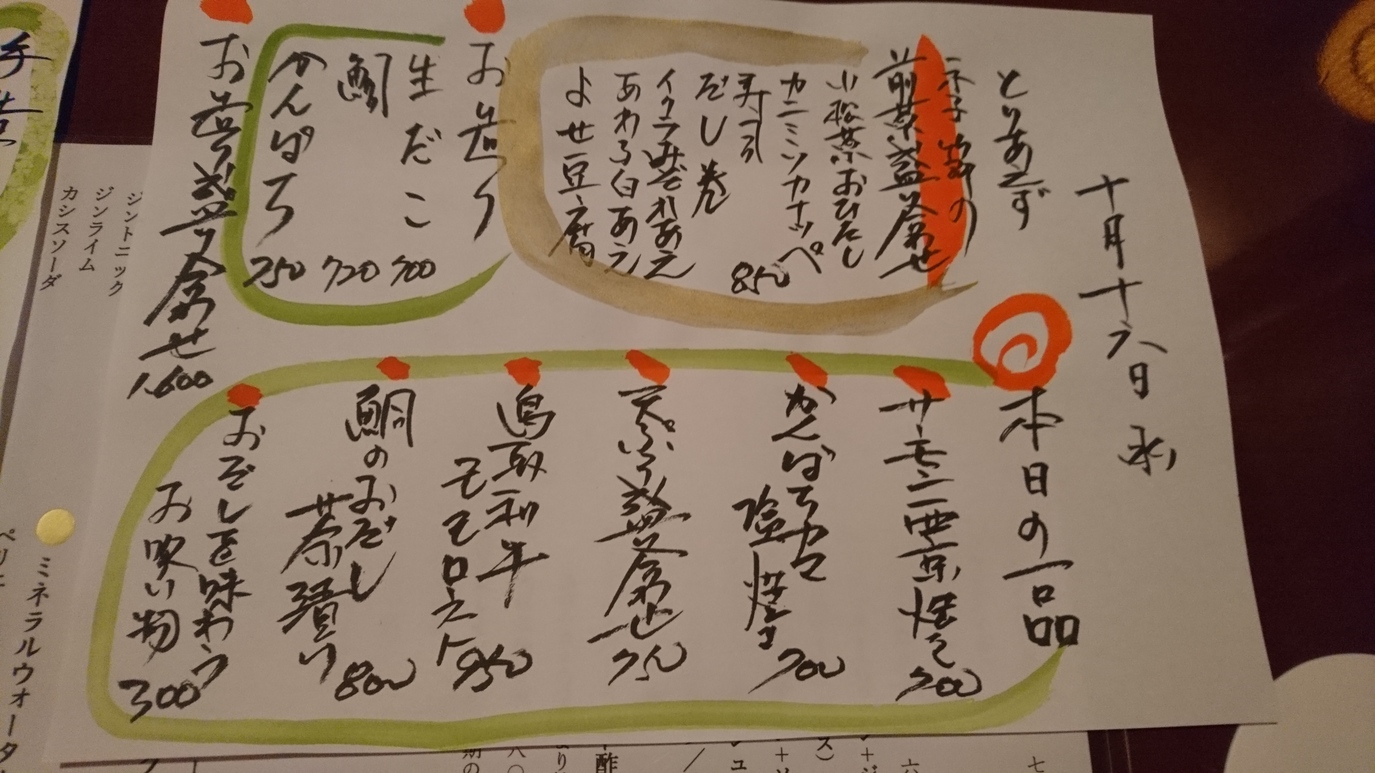 十月十六日
とりあえず
前菜盛合せ
小松菜おひたし
カニミソカナッペ
寿司
だし巻
イクラみぞれあえ
あわふ白あえ
よせ豆腐
850
お造り
生だこ 700
鯛 720
かんぱち 750
お造り盛り合せ 1,600
本日の一品
サーモン西京焼き 700
かんぱちカマ
塩焼き 700
天ぷら盛合せ 750
鳥取和牛
モモロースト 950
鯛のおだし
茶漬け 800
おだしを味わう
お吸い物 300
ジントニック
ジンライム
カシスソーダ
ミネラルウォータ